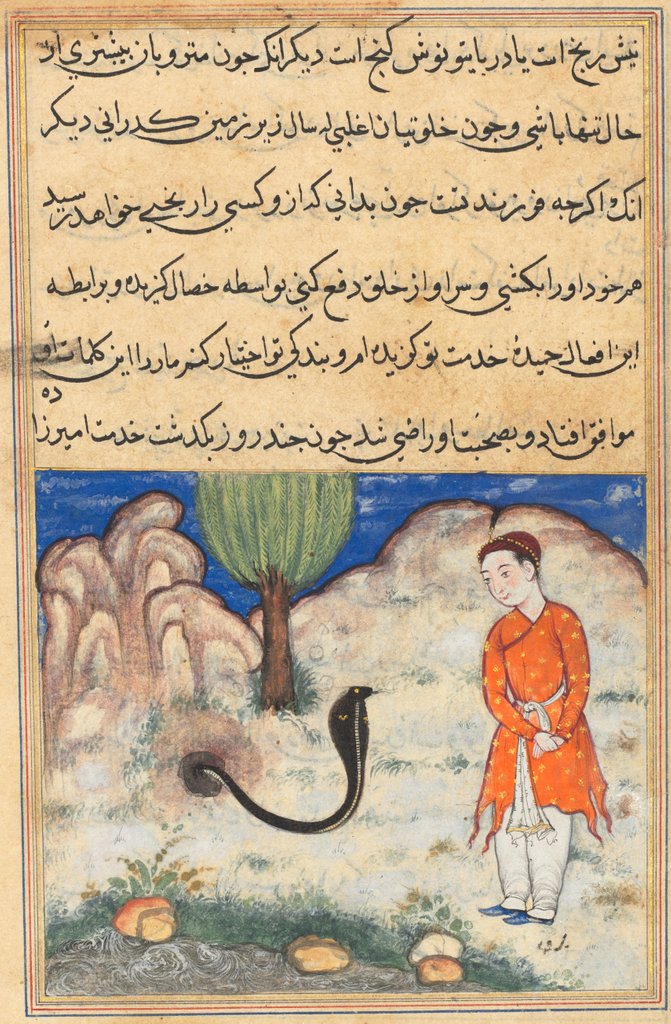 نیش رنج است یا در بایتو نوش کنج است دیکر انک جون متروبان بیشتری از
حال تنها باشی و جون خلوتیان اغلبی له سال زیر زمین کدرانی دیکر
انک اکرجه فرزند تست جون بدانی که از و کسی را رنجی خواهد رسید
هم خود او را بکشی و سر او از خلق دفع کنی بواسطه خصال کزیده و برابطه
این افعال حمیدهٔ خدمت تو کزیده ام و بندکی تو اختیار کنم مار را این کلمات او
ده
موافق افتاد و بصحبت او راضی شد جون جند روز بکدشت خدمت امیرزا